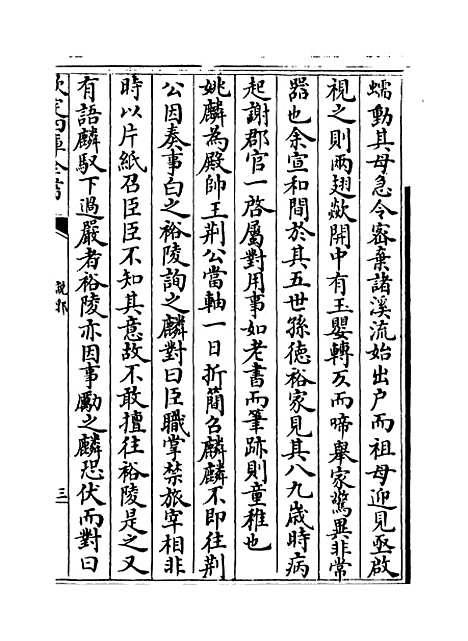 蠕動其母急令密棄諸溪流始出户而祖母迎見亟啟
視之則兩翅歘開中有玉嬰轉仄而啼舉家驚異非常
器也余宣和間於其五世孫徳裕家見其八九歲時病
起謝郡官一啓屬對用事如老書而筆跡則童稚也
姚麟為殿帥王荆公當軸一日折簡召麟麟不即往荆
公因奏事白之裕陵詢之麟對曰臣職掌禁旅宰相非
時以片紙召臣臣不知其意故不敢擅往裕陵是之又
有語麟馭下過嚴者裕陵亦因事勵之麟恐伏而對曰
欽定四庫全書
說郛
三